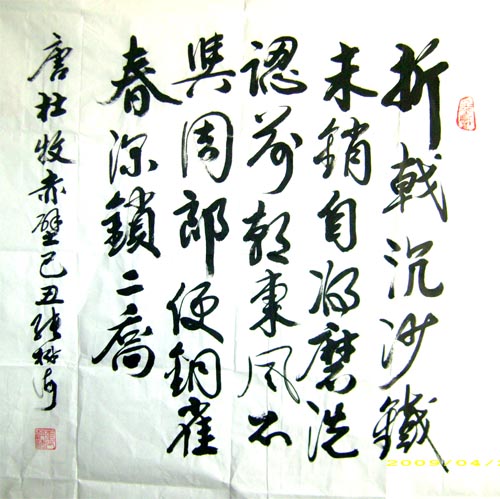 折戟沉沙鐵
未銷自將磨洗
認前朝東風不
與周郎便銅雀
春深鎖二喬
唐杜牧赤壁己丑
2009/04/